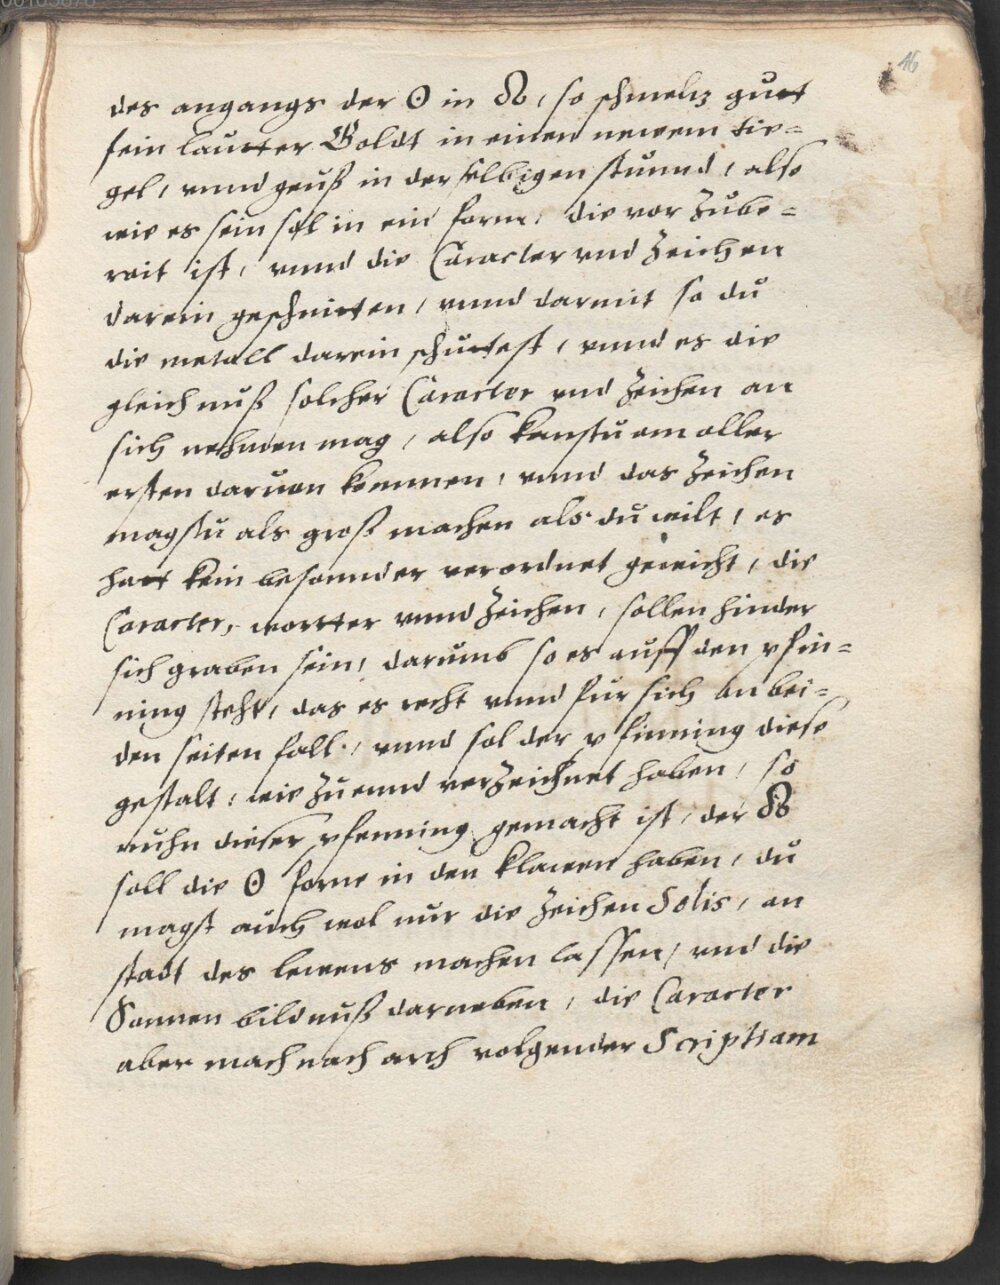 46
des angangs der ☉ in ♌, so schmeltz gutt
fein lautter Goldt in einen newem tie=
gel, vnnd geuß in derselbigen stunnd, also
wie es sein sol in ein form, die vor Zube=
reit ist, vnnd die Caracter vnd Zeichen
darein geschnitten, vnnd darmit so du
die metall darein schuttest, vnnd es die
gleichnuß solcher Caracter vnd Zeichen an
sich nehmen mag, also kanstu am aller
ersten daruon kommen, vnnd das Zeichen
magstu als groß machen als du wilt, es
hatt kein besonnder verordnet gewicht, die
Caracter, wortter vnnd Zeichen, sollen hinder
sich graben sein, darumb so es auff den pfin=
ning steht, das es recht vnnd fur sich an bei=
den seiten fall, vnnd sol der pfinning diese
gestalt, wie Zu ennd verZeichnet haben, so
nuhn dieser pfenning gemacht ist, der ♌
soll die ☉ forne in den klawen haben, du
magst auch wol nur die Zeichen Solis, an
stadt des lewens machen lassen, vnd die
Sonnen bildnuß darneben, die Caracter
aber mach nach arth volgender Scriptiam